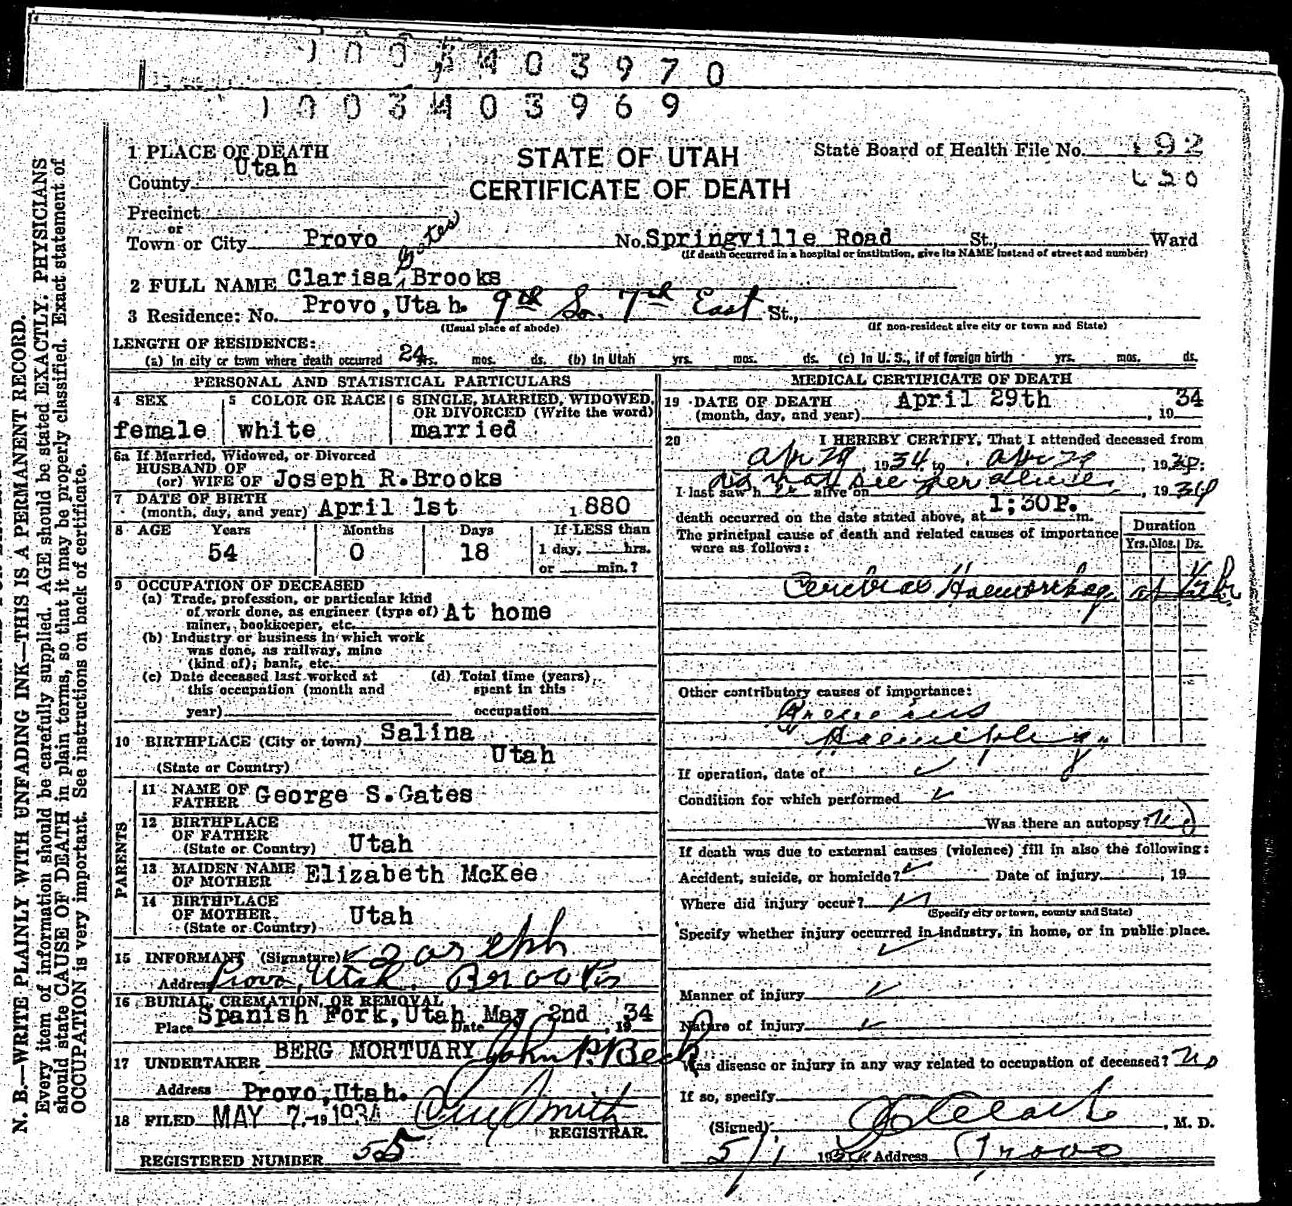 1003403970
1003403969
1 PLACE OF DEATH
STATE OF UTAH
CERTIFICATE OF DEATH
State Board of Health File No. 192
County Utah
Precinct
or
Town or City Provo No. Springville Road St., Ward
(If death occurred in a hospital or institution, give its NAME instead of street and number)
2 FULL NAME Clarisa Gates Brooks
3 Residence: No. Provo, Utah. 9th So. 7th East St.,
(Usual place of abode) (If non-resident give city or town and State)
LENGTH OF RESIDENCE:
(a) In city or town where death occurred 24 yrs. mos. ds. (b) In Utah yrs. mos. ds. (c) In U. S., if of foreign birth yrs. mos. ds.
PERSONAL AND STATISTICAL PARTICULARS
4 SEX female
5 COLOR OR RACE white
6 SINGLE, MARRIED, WIDOWED, OR DIVORCED (Write the word) married
6a If Married, Widowed, or Divorced
HUSBAND OF
(or) WIFE OF Joseph R. Brooks
7 DATE OF BIRTH
(month, day, and year) April 1st 1880
8 AGE Years Months Days If LESS than
54 0 18 1 day, hrs.
or min.?
9 OCCUPATION OF DECEASED
(a) Trade, profession, or particular kind
of work done, as engineer (type of)
miner, bookkeeper, etc. At home
(b) Industry or business in which work
was done, as railway, mine
(kind of); bank, etc.
(c) Date deceased last worked at
this occupation (month and
year)
(d) Total time (years),
spent in this
occupation
10 BIRTHPLACE (City or town) Salina
(State or Country) Utah
PARENTS
11 NAME OF
FATHER George S. Gates
12 BIRTHPLACE
OF FATHER
(State or Country) Utah
13 MAIDEN NAME
OF MOTHER Elizabeth McKee
14 BIRTHPLACE
OF MOTHER
(State or Country) Utah
15 INFORMANT (Signature) Joseph
Address Provo, Utah. Brooks
16 BURIAL, CREMATION, OR REMOVAL
Place Spanish Fork, Utah Date May 2nd, 1934
17 UNDERTAKER BERG MORTUARY John P. Beck
Address Provo, Utah.
18 FILED MAY 7- 1934 Smith
REGISTRAR.
REGISTERED NUMBER 55
MEDICAL CERTIFICATE OF DEATH
19 DATE OF DEATH
(month, day, and year) April 29th, 1934
20 I HEREBY CERTIFY, That I attended deceased from
Apr 29, 1934 to Apr 29, 1934:
I last saw her alive on did not see her alive, 1934
death occurred on the date stated above, at 1;30P. m.
The principal cause of death and related causes of importance
were as follows:
Duration
Yrs. Mos. Ds.
Cerebral Haemorrhage
Other contributory causes of importance:
Previous
If operation, date of
Condition for which performed
Was there an autopsy? No
If death was due to external causes (violence) fill in also the following:
Accident, suicide, or homicide? Date of injury , 19
Where did injury occur?
(Specify city or town, county and State)
Specify whether injury occurred in industry, in home, or in public place.
Manner of injury
Nature of injury
Was disease or injury in any way related to occupation of deceased? No
If so, specify
(Signed) , M. D.
5/1 1934 Address Provo
N. B.—WRITE PLAINLY WITH UNFADING INK—THIS IS A PERMANENT RECORD.
Every item of information should be carefully supplied. AGE should be stated EXACTLY. PHYSICIANS
should state CAUSE OF DEATH in plain terms, so that it may be properly classified. Exact statement of
OCCUPATION is very important. See instructions on back of certificate.